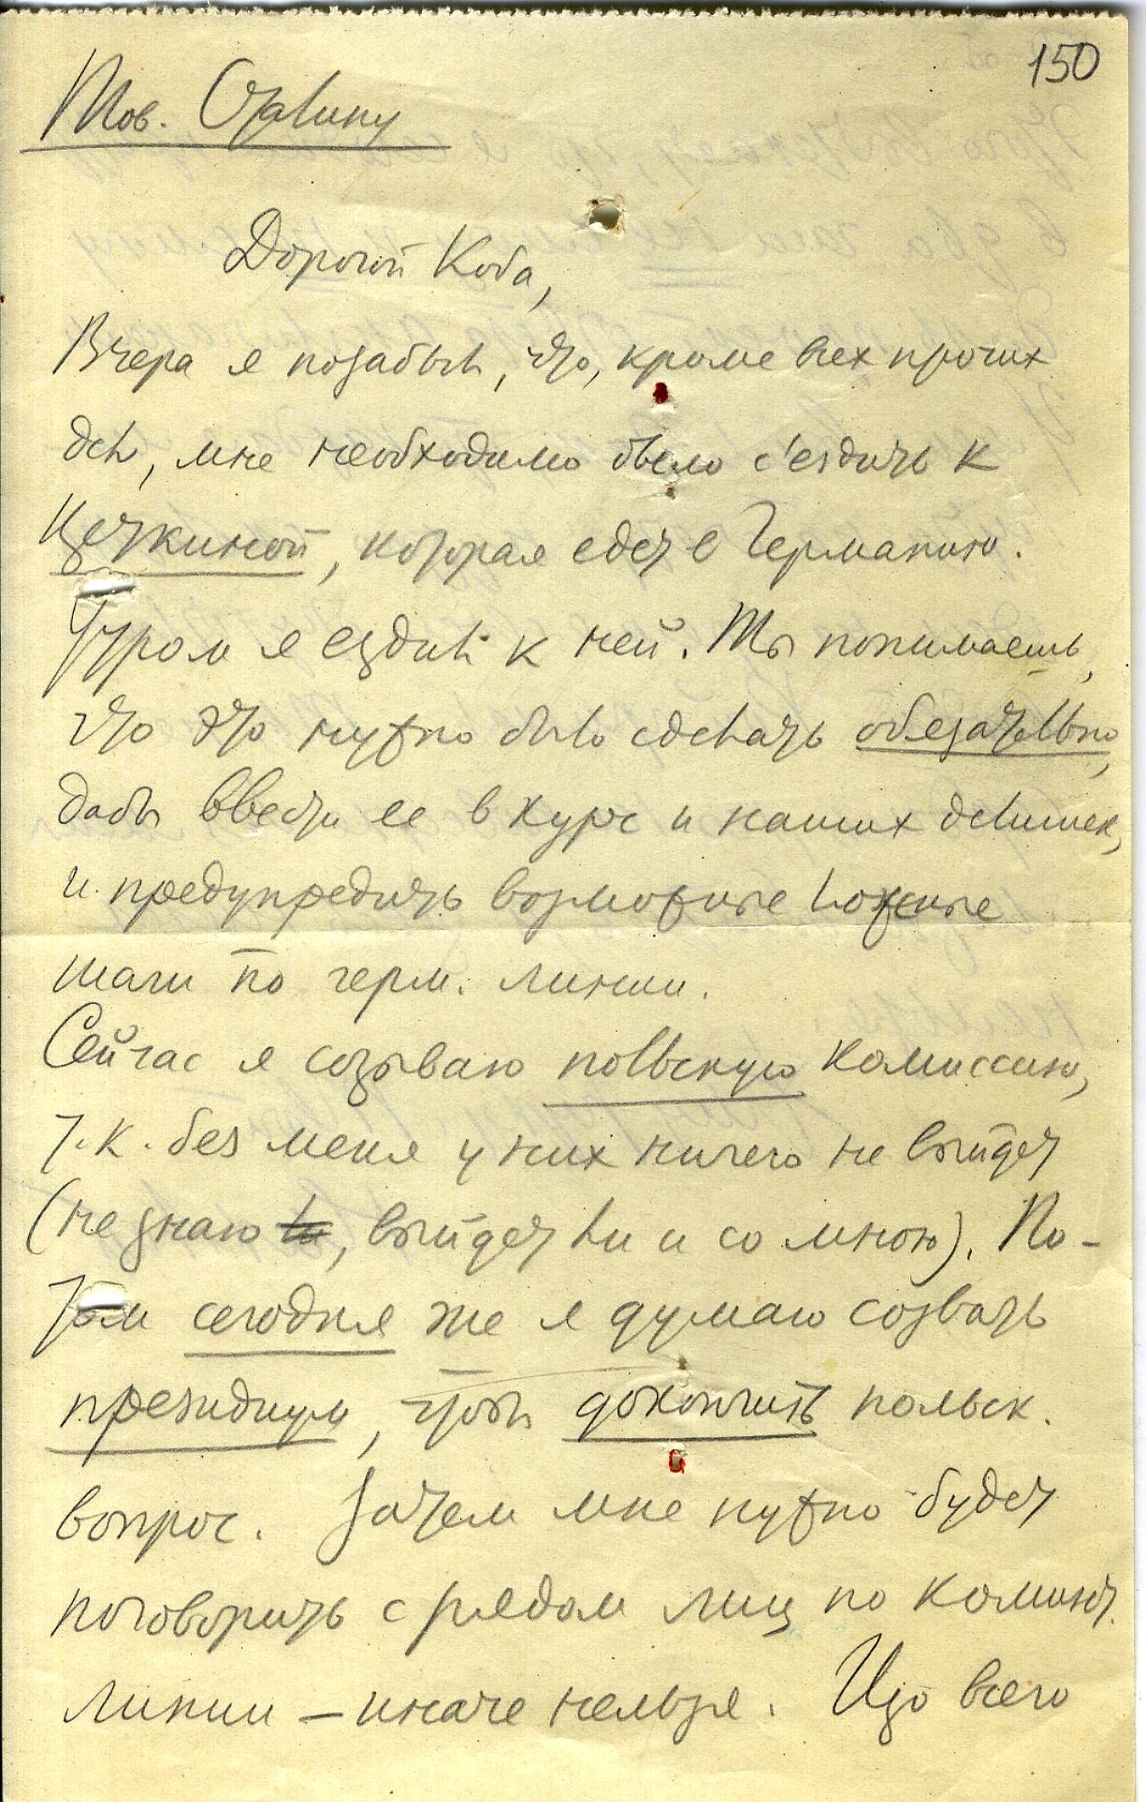 150
Тов. Сталину
Дорогой Коба,
Вчера я позабыл, что, кроме всех прочих
дел, мне необходимо было с'ездить к
Цеткиной, которая едет в Германию.
Утром я ездил к ней. Ты понимаешь,
что это нужно было сделать обязательно,
дабы ввести ее в курс и наших делишек,
и предупредить возможные ложные
шаги по герм. линии.
Сейчас я созываю польскую комиссию,
т.к. без меня у них ничего не выйдет
(не знаю, выйдет ли и со мною). По-
том сегодня же я думаю созвать
президиум, чтобы докончить польск.
вопрос. Затем мне нужно будет
поговорить с рядом лиц по коминт.
линии – иначе нельзя. Изо всего